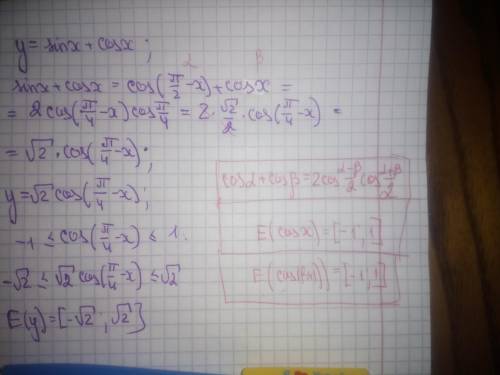 y = sinx + cosx ;
α β
sinx + cosx = cos(π/2 - x) + cosx =
= 2cos(π/4 - x) cos π/4 = 2 · √2/2 · cos(π/4 - x) =
= √2 · cos(π/4 - x) ;
y = √2 cos(π/4 - x) ;
-1 ≤ cos(π/4 - x) ≤ 1 .
-√2 ≤ √2 cos(π/4 - x) ≤ √2
E(y) = [-√2 ; √2]
cosα + cosβ = 2cos (α-β)/2 cos (α+β)/2
E(cosx) = [-1 ; 1]